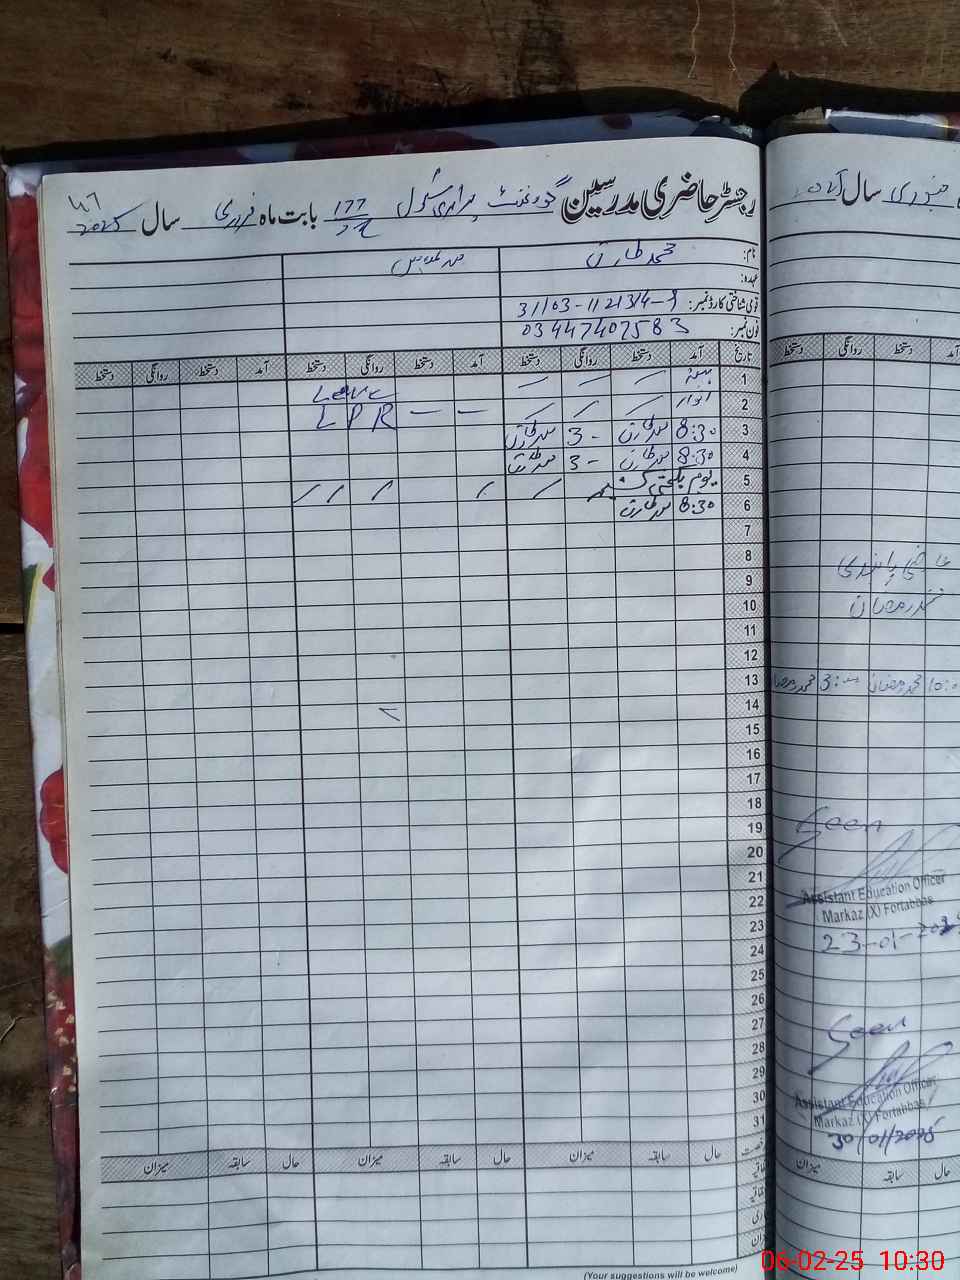 رجسٹر حاضری مدرسین گورنمنٹ پرائمری سکول 177 بابت ماہ فروری سال 2025
نام: محمد طارق
عہدہ:
قومی شناختی کارڈ نمبر: 31103-1121314-9
فون نمبر: 03447407583
تاریخ آمد دستخط روانگی دستخط آمد دستخط روانگی دستخط آمد دستخط روانگی دستخط
1 ہفتہ — — — Leave
2 اتوار — — — — — LPR
3 8:30 محمد طارق 3- محمد طارق
4 8:30 محمد طارق 3- محمد طارق
5 یوم یکجہتی کشمیر
6 8:30 محمد طارق
7
8
9
10
11
12
13
14
15
16
17
18
19
20
21
22
23
24
25
26
27
28
29
30
31
حال سابقہ میزان حال سابقہ میزان حال سابقہ میزان
(Your suggestions will be welcome)
جنوری سال
دستخط روانگی دستخط
محمد رمضان
10:0 محمد رمضان 3: محمد رمضان
Seen
Assistant Education Officer
Markaz (X) Fortabbas
23-01-2025
Seen
Assistant Education Officer
Markaz (X) Fortabbas
30/01/2025
حال سابقہ میزان
06-02-25 10:30